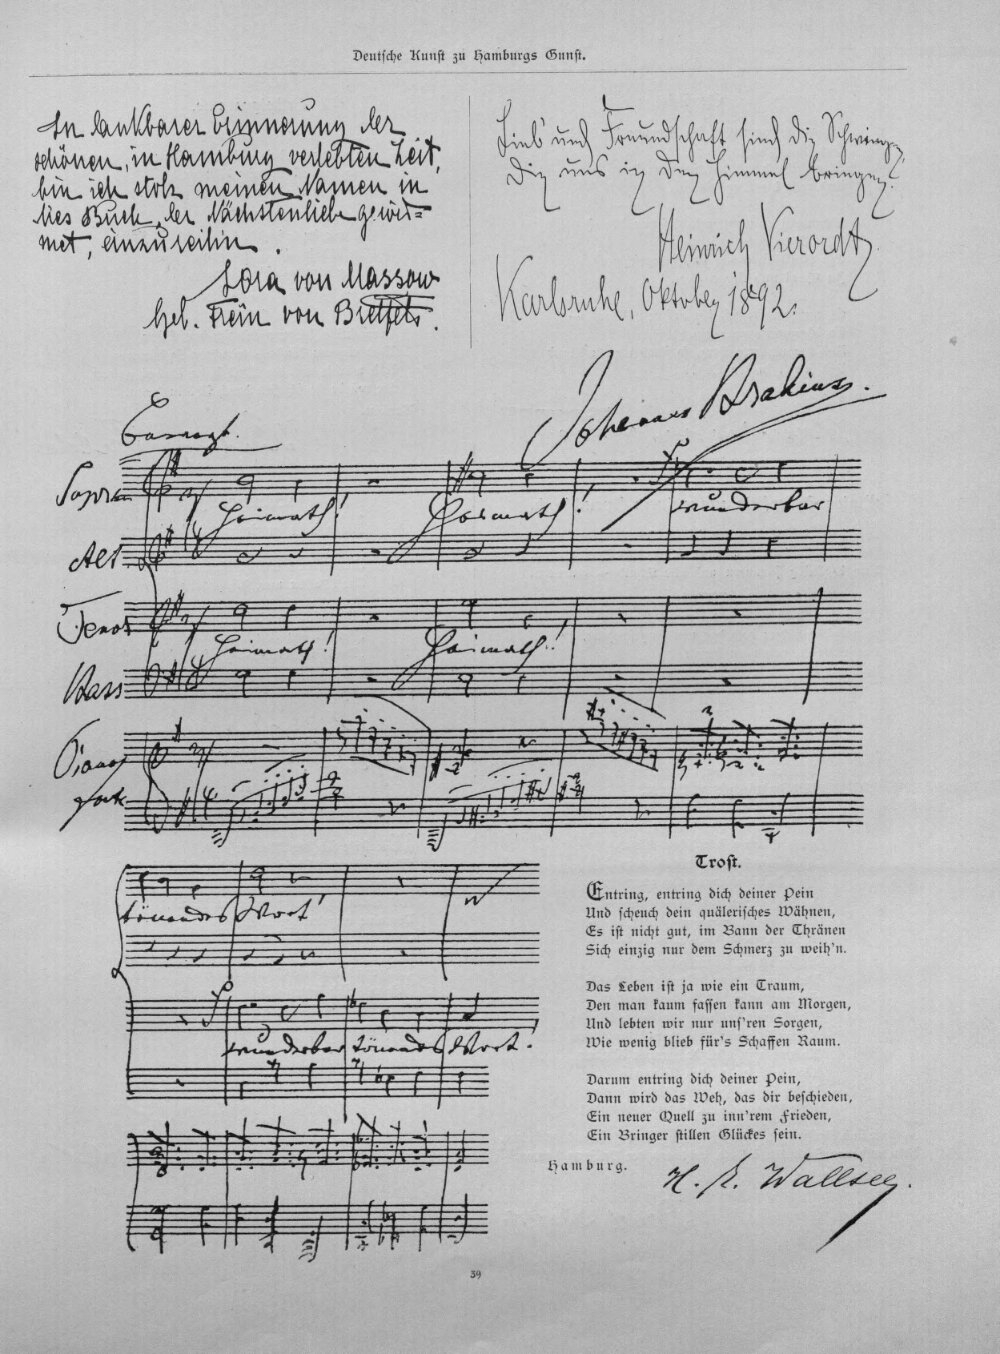 Deutsche Kunst zu Hamburgs Gunst.
In dankbarer Erinnerung der
schönen, in Hamburg verlebten Zeit,
bin ich stolz meinen Namen in
dies Buch, der Nächstenliebe gewid=
met, einzureihen.
Lora von Massow
geb. Freiin von
Lieb' und Freundschaft sind die Schwingen,
Die uns in den Himmel bringen.
Heinrich Vierordt
Karlsruhe, Oktober 1892.
Johannes Brahms.
Sopran
Heimath! Heimath! wunderbar
Alt.
Tenor
Heimath! Heimath!
Bass
Piano
forte
tönendes Wort!
wunderbar tönendes Wort!
Trost.
Entring, entring dich deiner Pein
Und scheuch dein quälerisches Wähnen,
Es ist nicht gut, im Bann der Thränen
Sich einzig nur dem Schmerz zu weih'n.
Das Leben ist ja wie ein Traum,
Den man kaum fassen kann am Morgen,
Und lebten wir nur uns'ren Sorgen,
Wie wenig blieb für's Schaffen Raum.
Darum entring dich deiner Pein,
Dann wird das Weh, das dir beschieden,
Ein neuer Quell zu inn'rem Frieden,
Ein Bringer stillen Glückes sein.
Hamburg.
H. E. Wallsee.
39